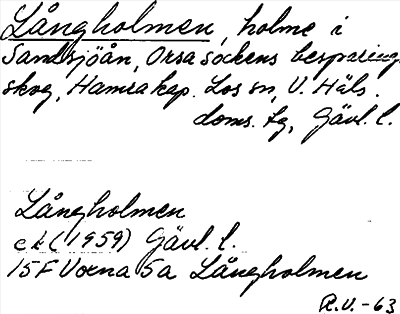 Långholmen, holme i
Sandsjöån, Orsa sockens besparings
skog, Hamra kap. Los sn, V. Häls.
doms. tg, Gävl. l.
Långholmen
ek (1959) Gävl. l.
15F Voxna 5a Långholmen
R.V.-63